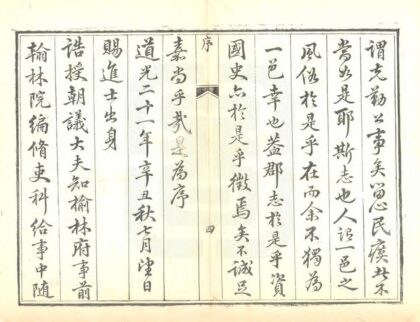 謂克勤公事矣民瘼不
當如是耶斯志也人謂一邑之
風俗於是乎在而余不獨為
一邑幸也蓋郡志於是乎資
國史亦於是乎徵焉矣不誠足
序
四
嘉尚乎哉是為序
道光二十一年辛丑秋七月望日
賜進士出身
誥授朝議大夫知榆林府事前
翰林院編脩吏科給事中隨